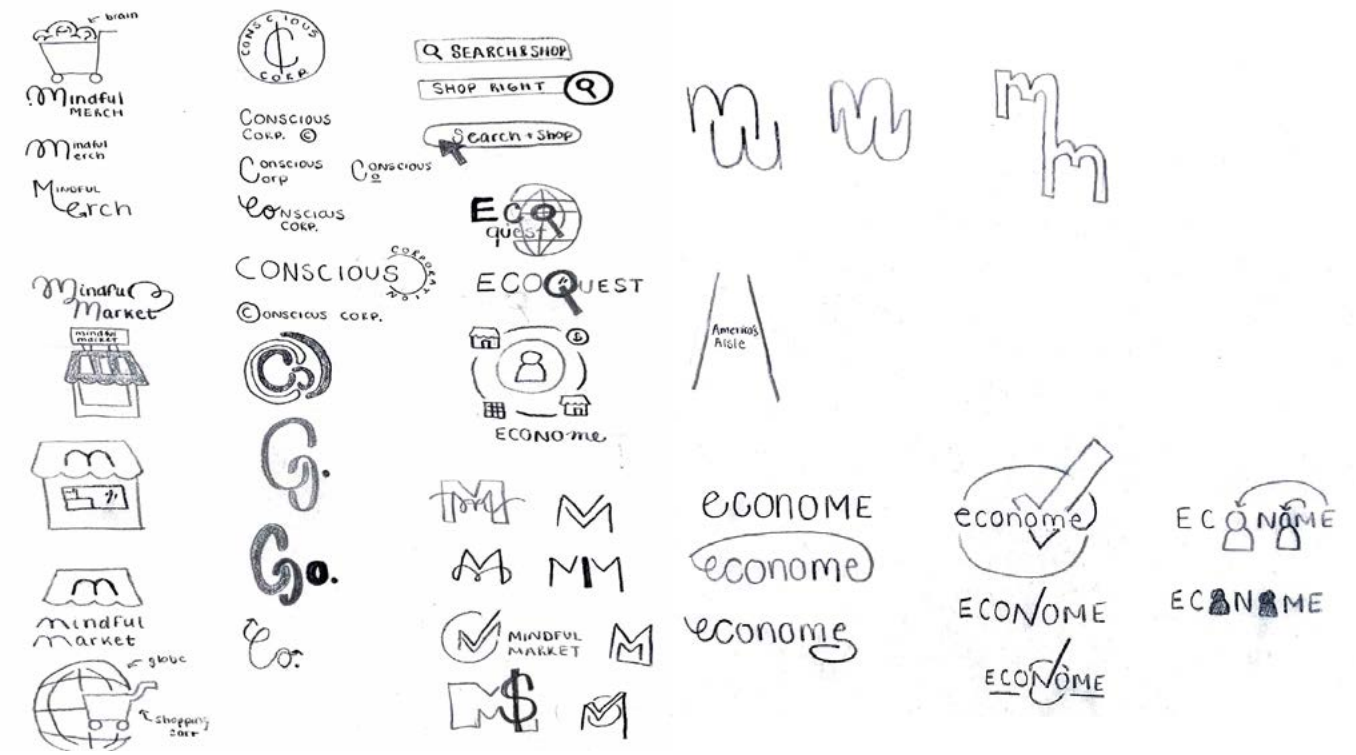 brain
Mindful
MERCH
Mindful
erch
MINDFUL
erch
Mindful
Market
mindful
market
m
m
mindful
market
globe
shopping
cart
CONSCIOUS
C
CORP.
CONSCIOUS
CORP. ©
CONSCIOUS
CORP
CONSCIOUS
CONSCIOUS
CORP.
CONSCIOUS
CORPORATION
©ONSCIOUS CORP.
Co
Co.
Co.
Co.
SEARCH&SHOP
SHOP RIGHT
Search + Shop
ECO
quest
ECOQUEST
$
ECONOme
M
M
M
M
MINDFUL
MARKET
M
M$
M
m
m
m
m
America's
Aisle
eCONOME
econome
econome
econome
ECONOME
ECONOME
ECONOME
ECONOME